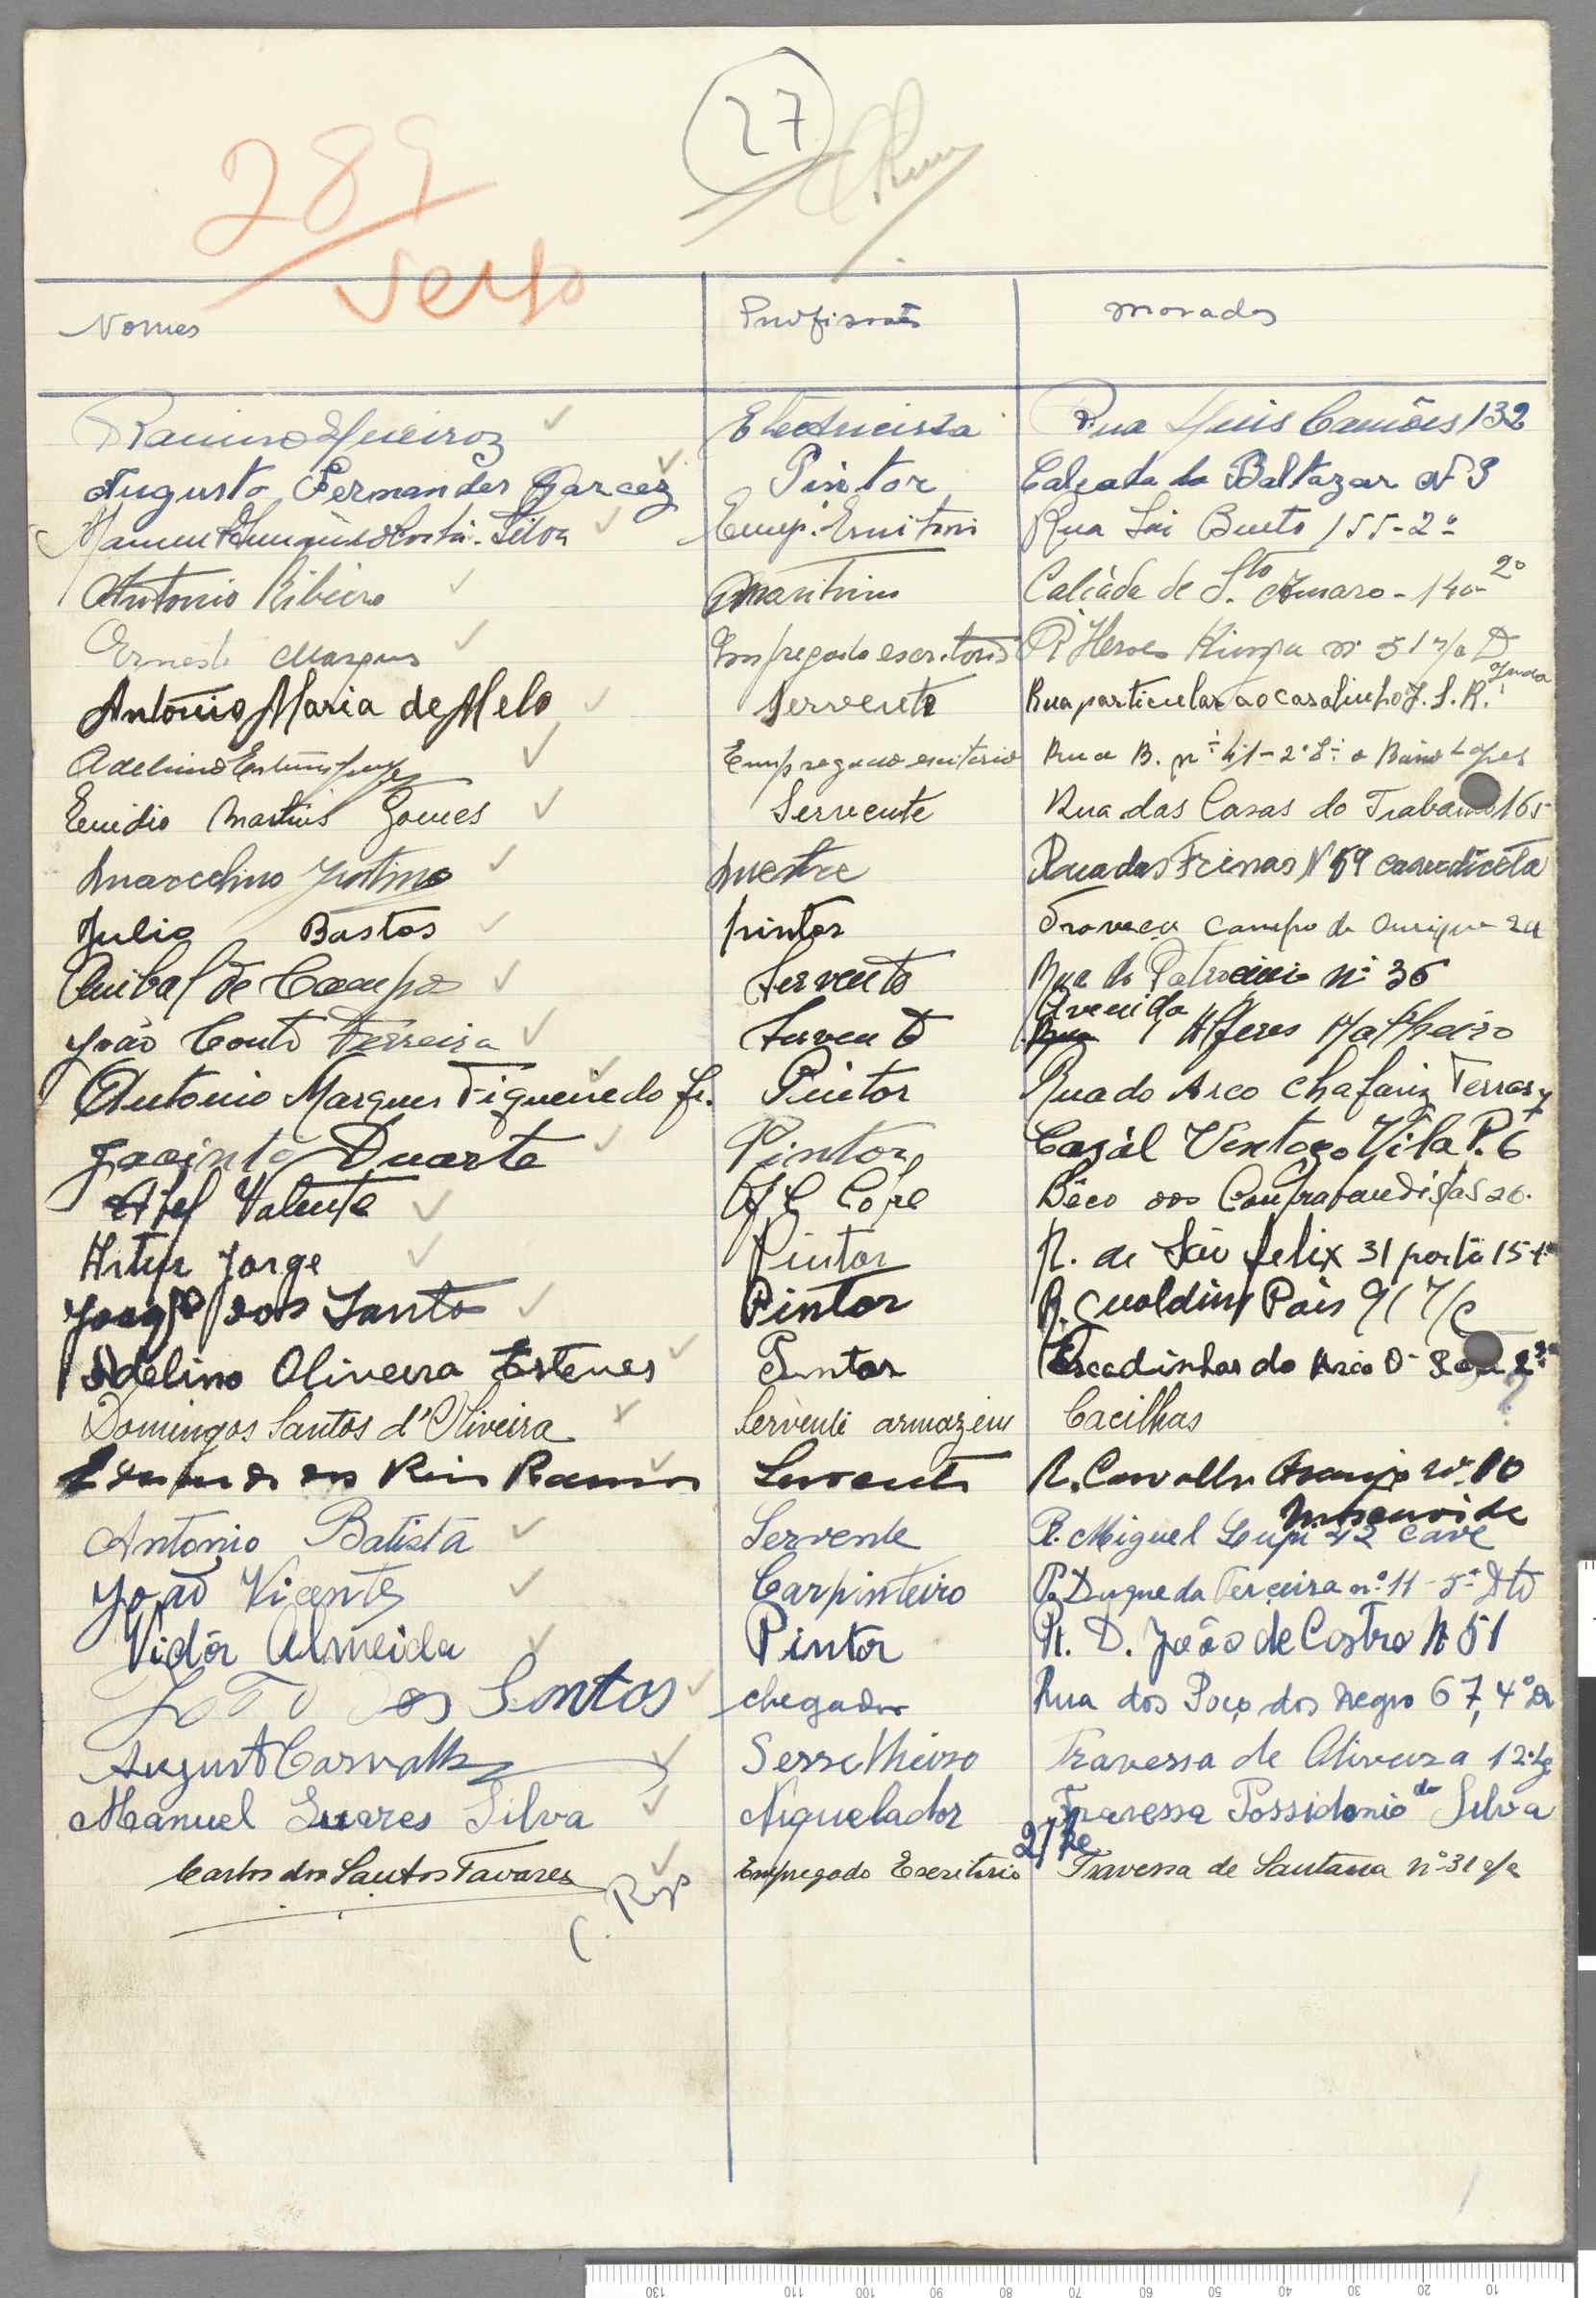 27
289
verso
Nomes Profissões moradas
Ramiro Queiroz Electricista Rua Luis Camões 132
Augusto Fernandes Garcez Pintor Calçada da Baltazar Nº 9
Manuel Silva Emp. Escritorio Rua Bento 155-2º
Antonio Ribeiro maritimo Calçada de Sto Amaro - 140 2º
Ernesto Marques Empregado escritorio R. Heroes Kionga nº 51 r/c D
Antonio Maria de Melo Servente Rua particular ao casalinho Ajuda
Adelino Empregado escritorio Rua B. nº 41-2º
Emidio Martins Gomes Servente Rua das Casas do Trabalho 165
Marcelino Justino mestre Rua das Trinas Nº 59 cave direita
Julio Bastos pintor Traveça Campo de Ourique 24
Anibal de Campos Servente Rua do Patrocinio nº 36
João Couto Ferreira Servente Avenida Alferes Malheiro
Antonio Marques Figueiredo Jr. Pintor Rua do Arco Chafariz Terras
Jacinto Duarte Pintor Casál Ventozo Vila P. 6
Abel Valente Bêco dos Contrabandistas 26.
Artur Jorge Pintor R. de São felix 31 porta 15
dos Santos Pintor R. Gualdim Pais 91 r/c
Adelino Oliveira Esteves Pintor Escadinhas do Arco D.
Domingos Santos d'Oliveira Servente armazem Cacilhas ?
dos Reis Ramos Servente R. Carvalho Araujo nº 10
Moscavide
Antonio Batista Servente R. Miguel Lupi 42 cave
João Vicente Carpinteiro R. Duque da Terceira nº 11-5º Dto
Vidór Almeida Pintor R. D. João de Castro Nº 51
dos Santos chegador Rua dos Poço dos Negro 67, 4º D
Augusto Carvalho Serrelheiro Travessa de Oliveira 12
Manuel Suares Silva Niquelador Travessa Possidonio da Silva
Carlos dos Santos Tavares Empregado Escritório Travessa de Santana nº 31 r/c